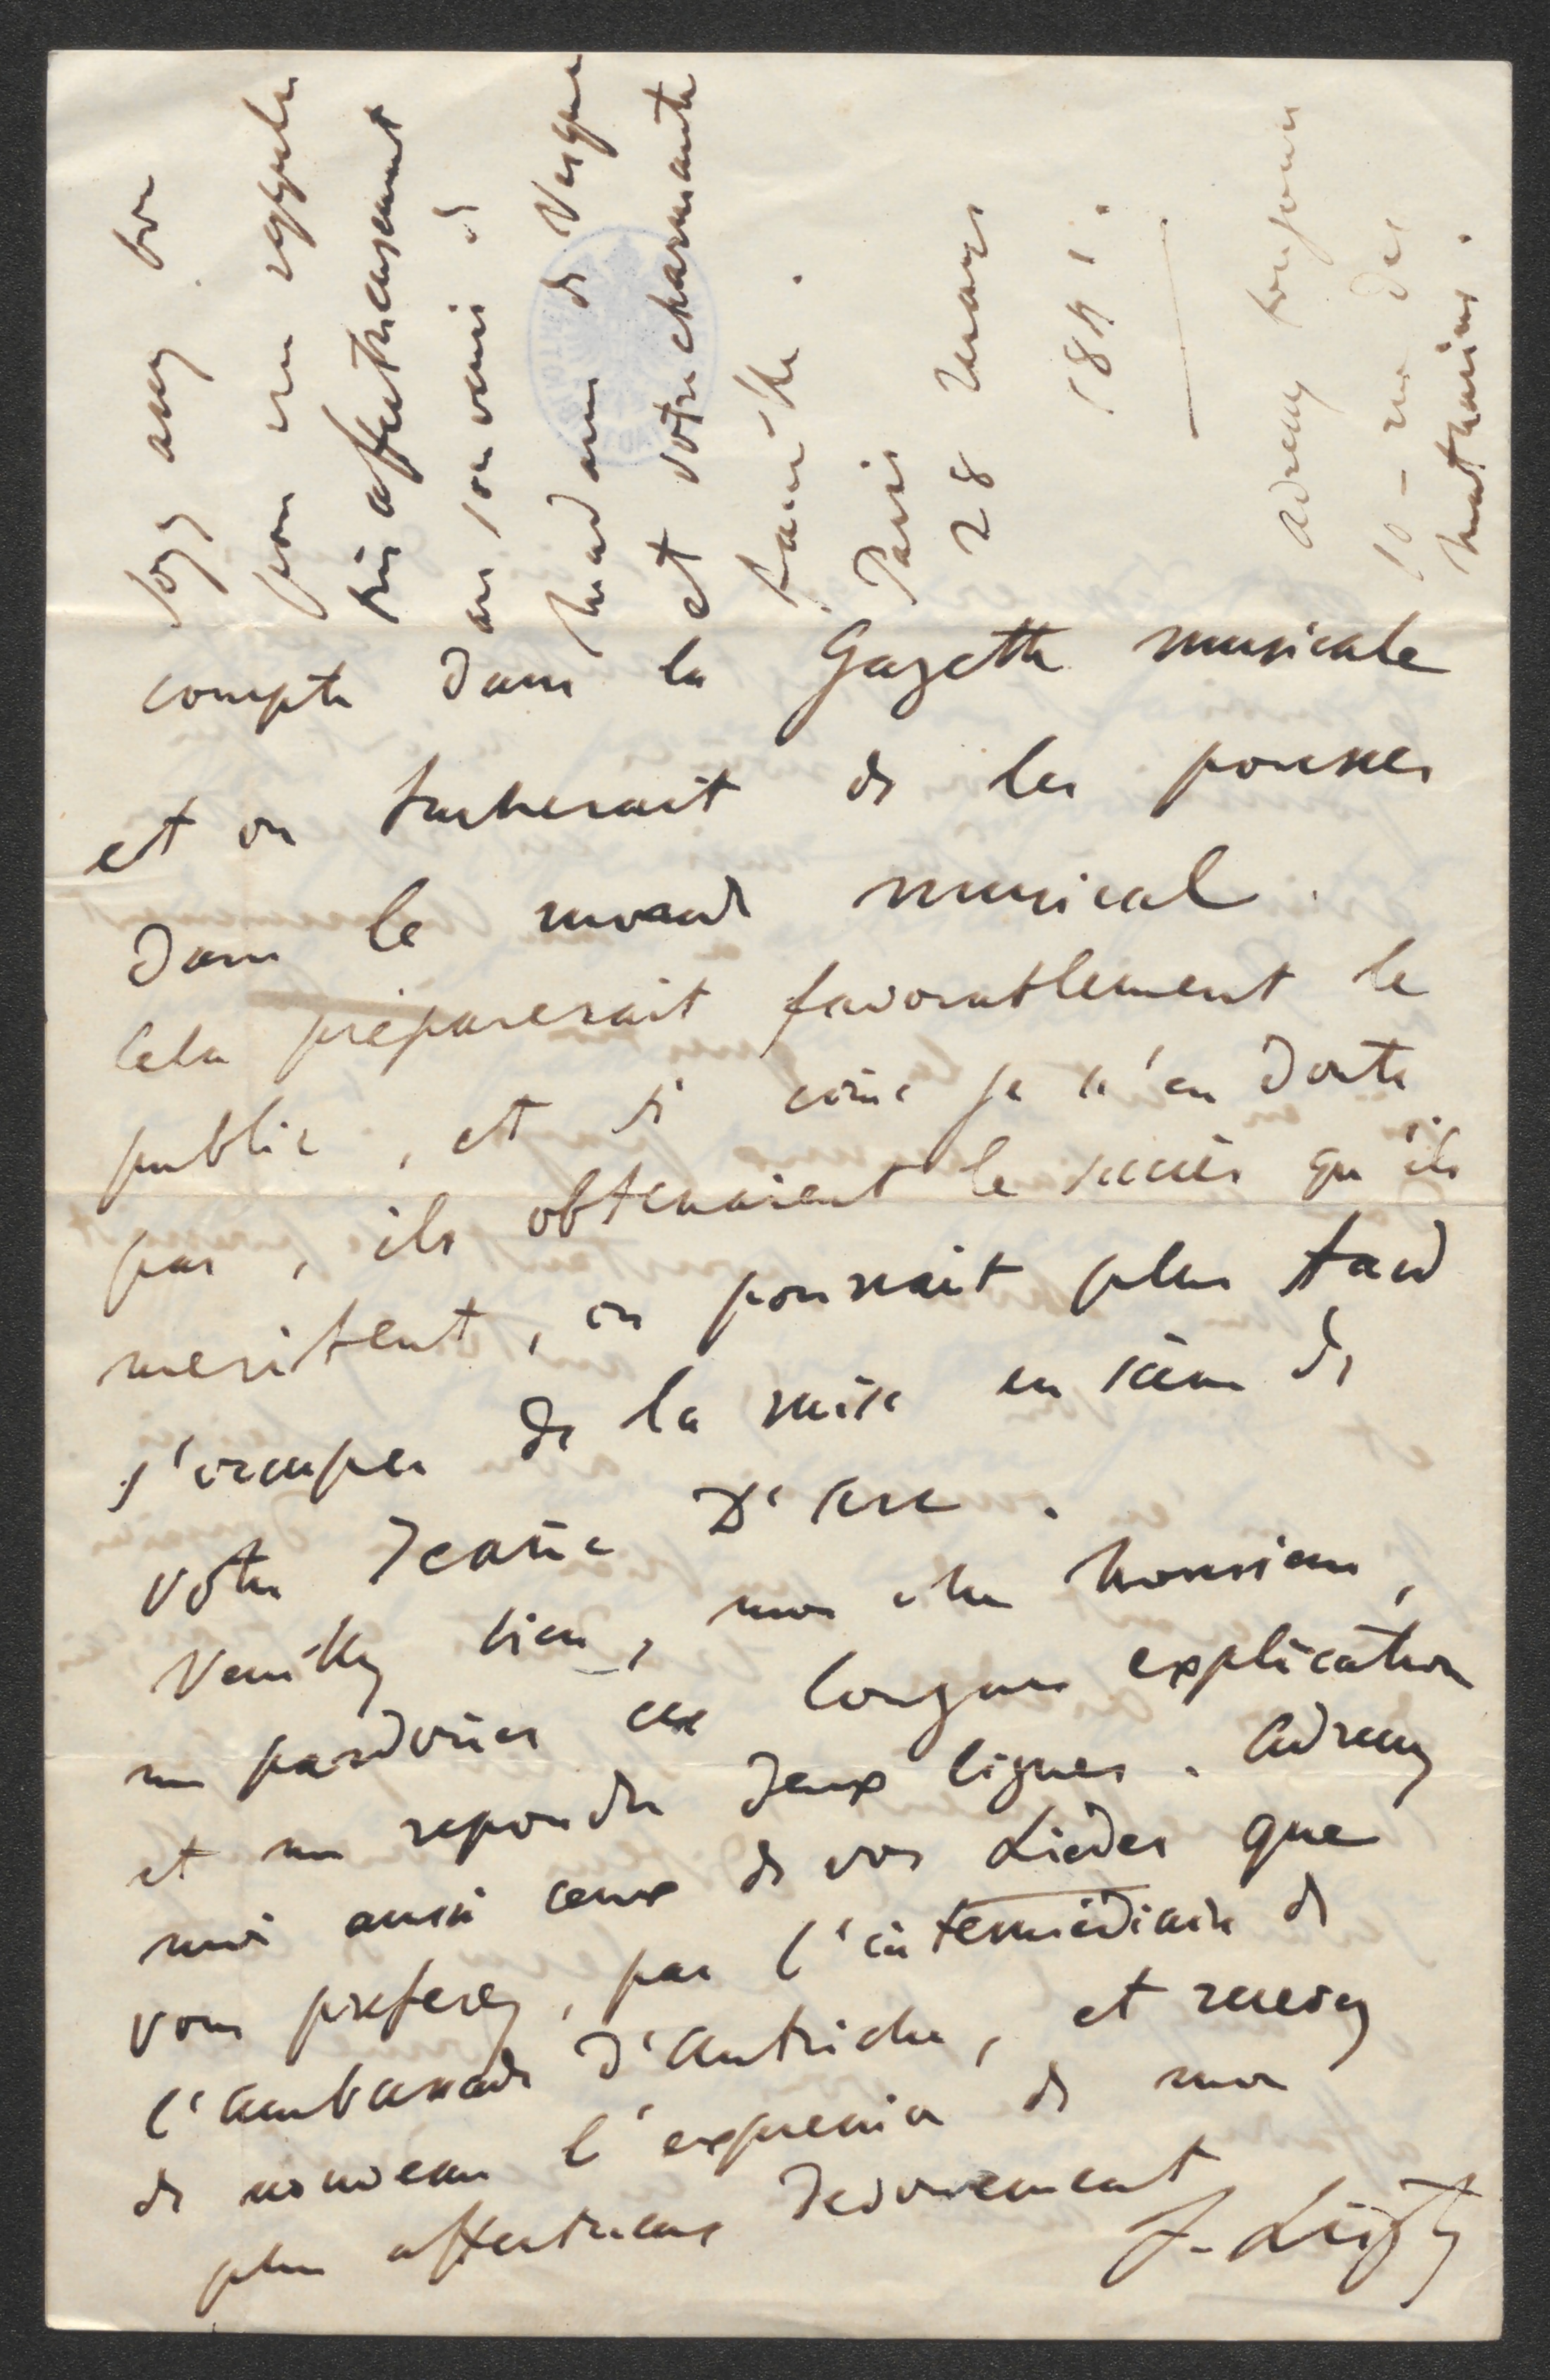 compte dans la Gazette musicale
et on tacherait de les pousser
dans le monde musical.
Cela préparerait favorablement le
public, et si com̄e je n'en doute
pas, ils obtenaient le succès qu'ils
meritent, on pourrait plus tard
s'occuper de la mise en scène de
votre Jean̄e D'Arc.
Veuillez bien, mon cher Monsieur,
me pardon̄er ces longues explication
et me repondre deux lignes. Adressez
moi aussi ceux de vos Lieder que
vous preferez, par l'intermédiaire de
l'ambassade d'Autriche, et recevez
de nouveau l'expression de mon
plus affectueux devouement
F. Liszt
Soyez assez bon
pour me rappeler
très affectueusement
au souvenir de
Madame de Vesque
et votre charmante
famille.
Paris
28 mars
1841.
adressez toujours
10 - rue des
Mathurins.